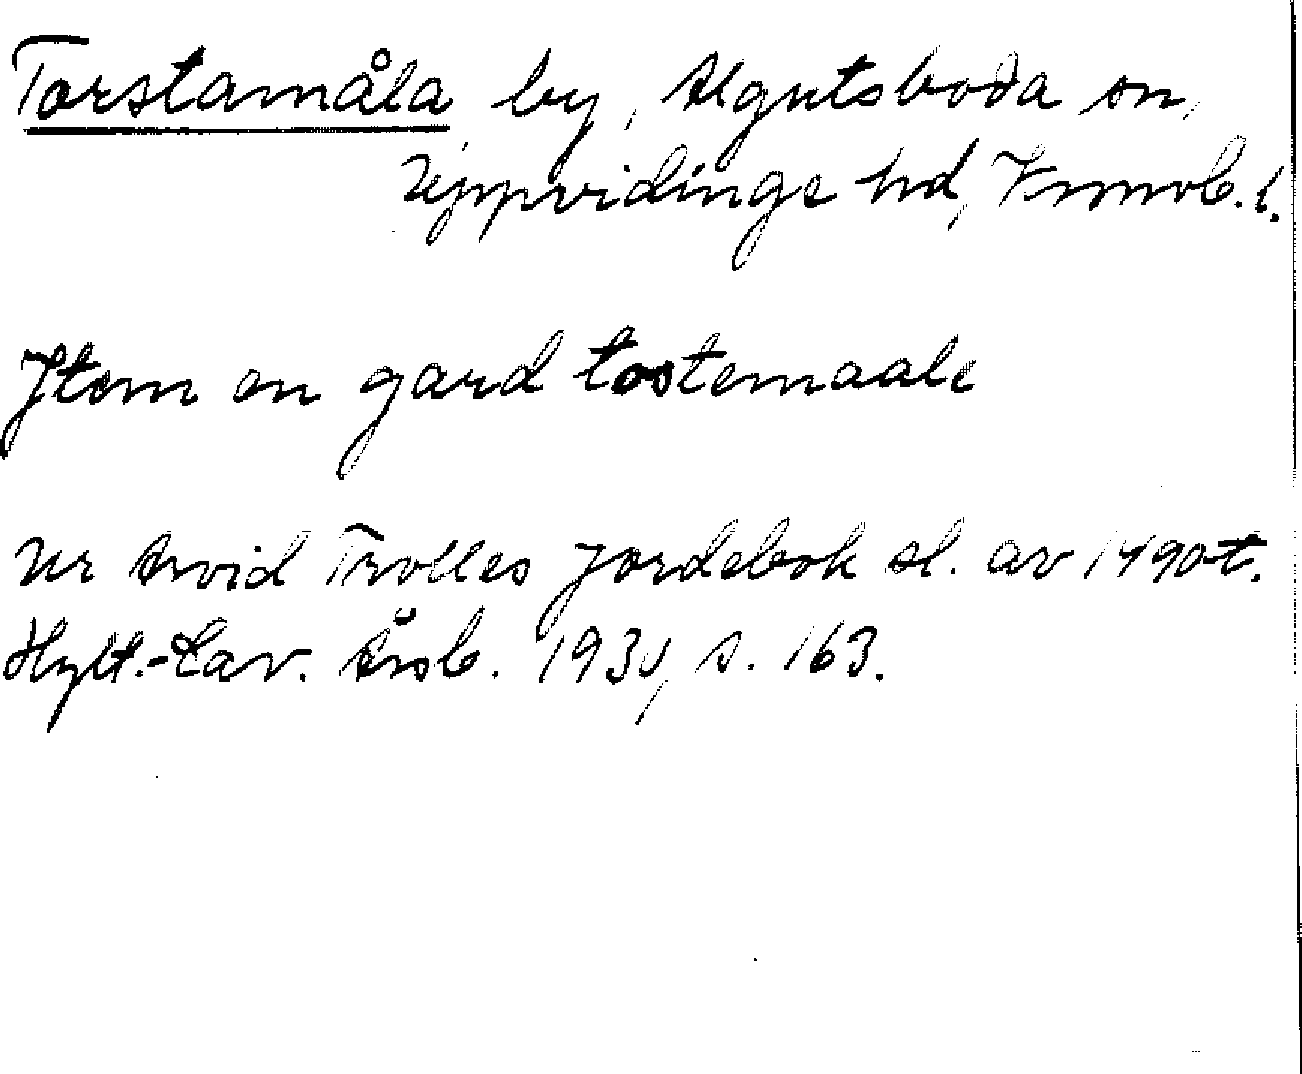 Torstamåla by, Algutsboda sn,
Uppvidinge hd, Kronob. l.
Jtem en gard tostemaale
Ur Arvid Trolles jordebok sl. av 1490-t.
Hylt.-Cav. Årsb. 193 , s. 163.